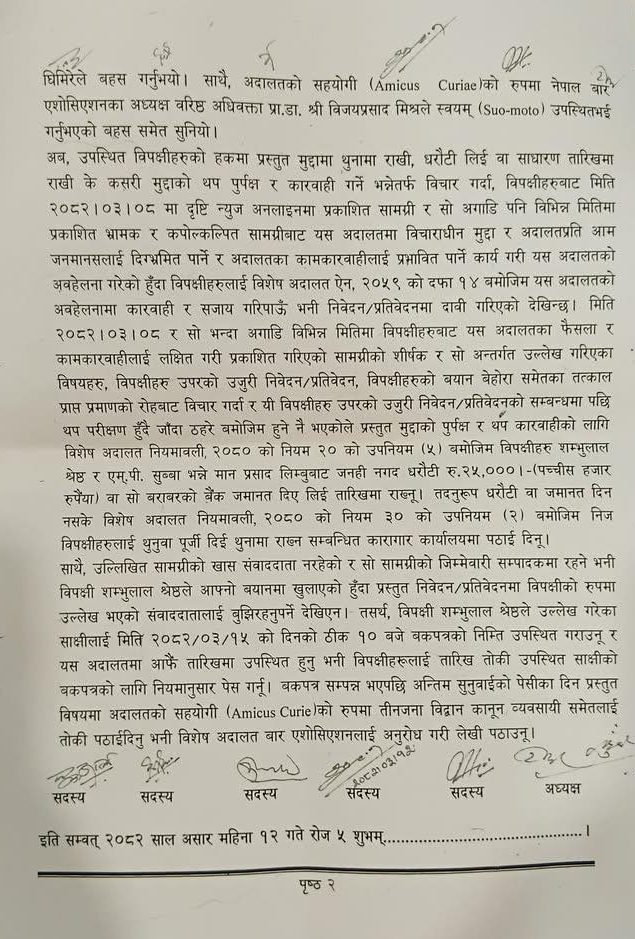 घिमिरेले बहस गर्नुभयो। साथै, अदालतको सहयोगी (Amicus Curiae)को रुपमा नेपाल बार
एशोसिएशनका अध्यक्ष वरिष्ठ अधिवक्ता प्रा.डा. श्री विजयप्रसाद मिश्रले स्वयम् (Suo-moto) उपस्थितभई
गर्नुभएको बहस समेत सुनियो।
अब, उपस्थित विपक्षीहरुको हकमा प्रस्तुत मुद्दामा थुनामा राखी, धरौटी लिई वा साधारण तारिखमा
राखी के कसरी मुद्दाको थप पुर्पक्ष र कारवाही गर्ने भन्नेतर्फ विचार गर्दा, विपक्षीहरुबाट मिति
२०८२।०३।०८ मा दृष्टि न्युज अनलाइनमा प्रकाशित सामग्री र सो अगाडि पनि विभिन्न मितिमा
प्रकाशित भ्रामक र कपोल्कल्पित सामग्रीबाट यस अदालतमा विचाराधीन मुद्दा र अदालतप्रति आम
जनमानसलाई दिग्भ्रमित पार्ने र अदालतका कामकारवाहीलाई प्रभावित पार्ने कार्य गरी यस अदालतको
अवहेलना गरेको हुँदा विपक्षीहरुलाई विशेष अदालत ऐन, २०५९ को दफा १४ बमोजिम यस अदालतको
अवहेलनामा कारवाही र सजाय गरिपाऊँ भनी निवेदन/प्रतिवेदनमा दावी गरिएको देखिन्छ। मिति
२०८२।०३।०८ र सो भन्दा अगाडि विभिन्न मितिमा विपक्षीहरुबाट यस अदालतका फैसला र
कामकारवाहीलाई लक्षित गरी प्रकाशित गरिएको सामग्रीको शीर्षक र सो अन्तर्गत उल्लेख गरिएका
विषयहरु, विपक्षीहरु उपरको उजुरी निवेदन/प्रतिवेदन, विपक्षीहरुको बयान बेहोरा समेतका तत्काल
प्राप्त प्रमाणको रोहबाट विचार गर्दा र यी विपक्षीहरु उपरको उजुरी निवेदन/प्रतिवेदनको सम्बन्धमा पछि
थप परीक्षण हुँदै जाँदा ठहरे बमोजिम हुने नै भएकोले प्रस्तुत मुद्दाको पुर्पक्ष र थप कारवाहीको लागि
विशेष अदालत नियमावली, २०८० को नियम २० को उपनियम (५) बमोजिम विपक्षीहरु शम्भुलाल
श्रेष्ठ र एम.पी. सुब्बा भन्ने मान प्रसाद लिम्बुबाट जनही नगद धरौटी रु.२५,०००।-(पच्चीस हजार
रुपैंया) वा सो बराबरको बैंक जमानत दिए लिई तारिखमा राख्नू। तदनुरूप धरौटी वा जमानत दिन
नसके विशेष अदालत नियमावली, २०८० को नियम ३० को उपनियम (२) बमोजिम निज
विपक्षीहरुलाई थुनुवा पूर्जी दिई थुनामा राख्न सम्बन्धित कारागार कार्यालयमा पठाई दिनू।
साथै, उल्लिखित सामग्रीको खास संवाददाता नरहेको र सो सामग्रीको जिम्मेवारी सम्पादकमा रहने भनी
विपक्षी शम्भुलाल श्रेष्ठले आफ्नो बयानमा खुलाएको हुँदा प्रस्तुत निवेदन/प्रतिवेदनमा विपक्षीको रुपमा
उल्लेख भएको संवाददातालाई बुझिरहनुपर्ने देखिएन। तसर्थ, विपक्षी शम्भुलाल श्रेष्ठले उल्लेख गरेका
साक्षीलाई मिति २०८२/०३/१५ को दिनको ठीक १० बजे बकपत्रको निम्ति उपस्थित गराउनू र
यस अदालतमा आफैं तारिखमा उपस्थित हुनु भनी विपक्षीहरूलाई तारिख तोकी उपस्थित साक्षीको
बकपत्रको लागि नियमानुसार पेस गर्नू। बकपत्र सम्पन्न भएपछि अन्तिम सुनुवाईको पेसीका दिन प्रस्तुत
विषयमा अदालतको सहयोगी (Amicus Curie)को रुपमा तीनजना विद्वान कानून व्यवसायी समेतलाई
तोकी पठाईदिनु भनी विशेष अदालत बार एशोसिएशनलाई अनुरोध गरी लेखी पठाउनू।
२०८२।०३।१२
सदस्य सदस्य सदस्य सदस्य सदस्य अध्यक्ष
इति सम्वत् २०८२ साल असार महिना १२ गते रोज ५ शुभम्.............................................।
पृष्ठ २